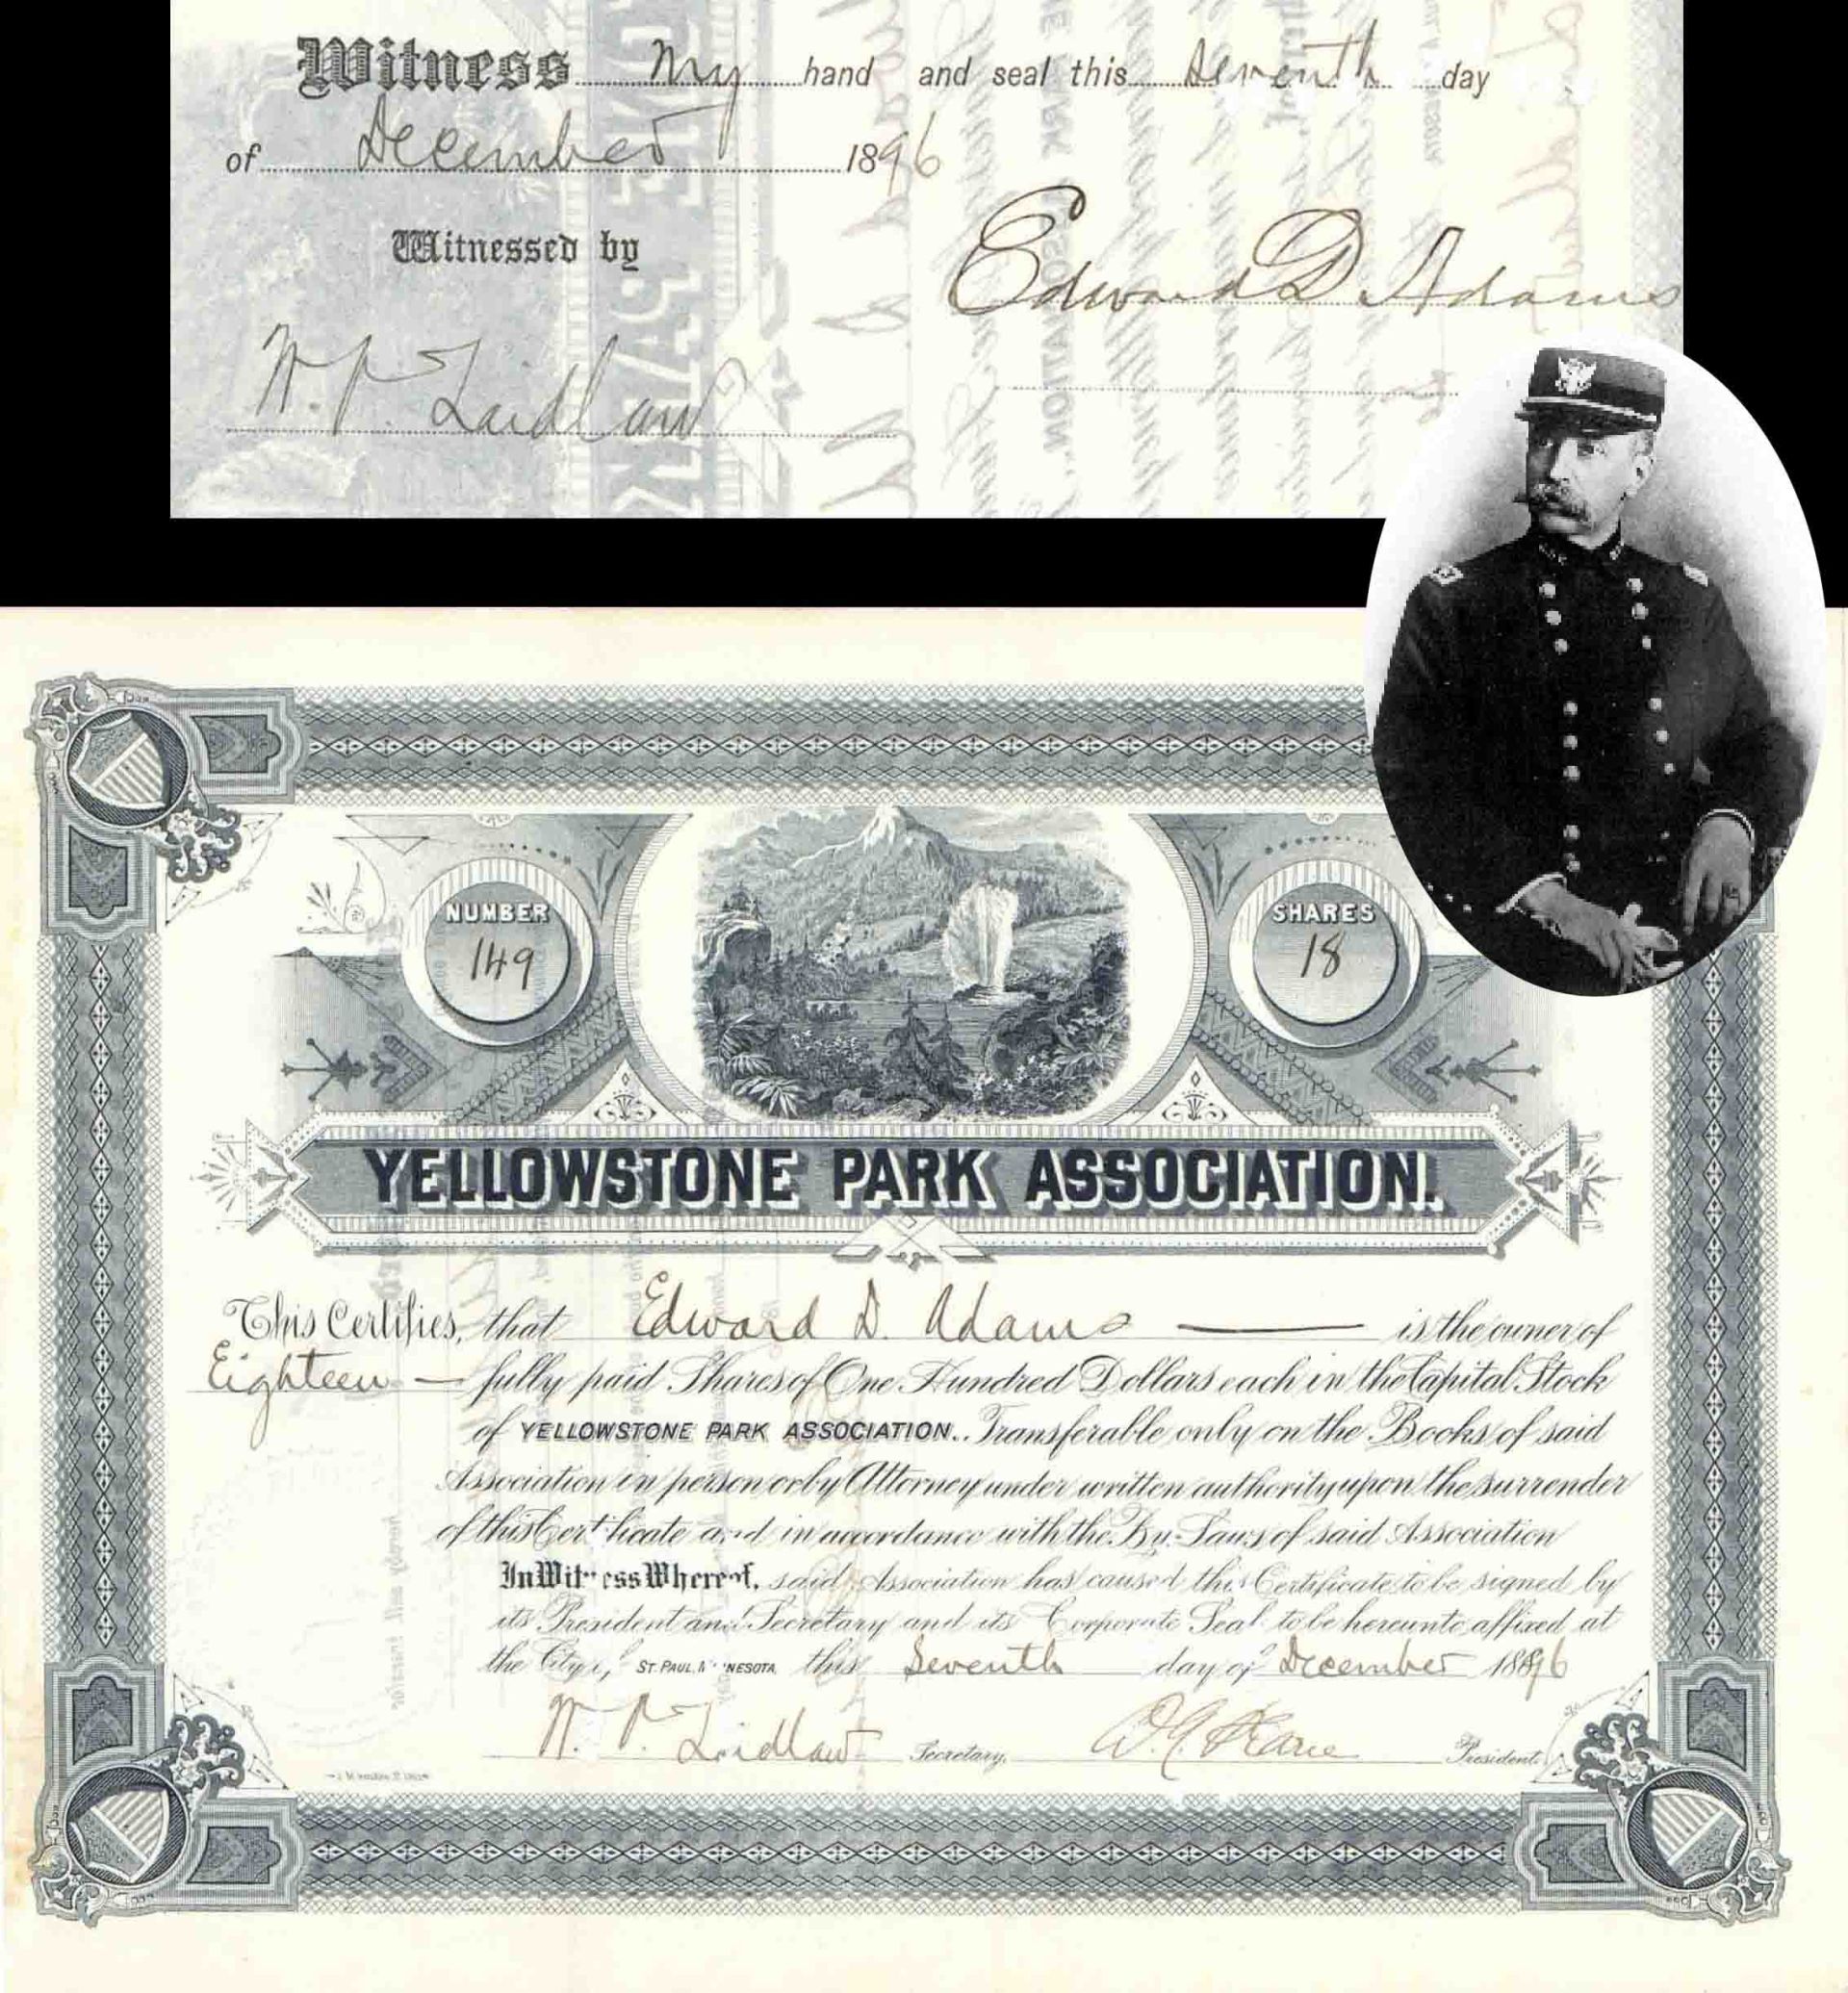 Witness My hand and seal this Seventh day
of December 1896
Witnessed by
Edward D. Adams
W. P. Laidlaw
NUMBER
149
SHARES
18
YELLOWSTONE PARK ASSOCIATION.
This Certifies, that Edward D. Adams is the owner of
Eighteen fully paid Shares of One Hundred Dollars each in the Capital Stock
of YELLOWSTONE PARK ASSOCIATION. Transferable only on the Books of said
Association in person or by Attorney under written authority upon the surrender
of this Certificate and in accordance with the By-Laws of said Association
In Witness Whereof, said Association has caused this Certificate to be signed by
its President and Secretary and its Corporate Seal to be hereunto affixed at
the City of ST. PAUL, MINNESOTA, this Seventh day of December 1896
W. P. Laidlaw Secretary, President.